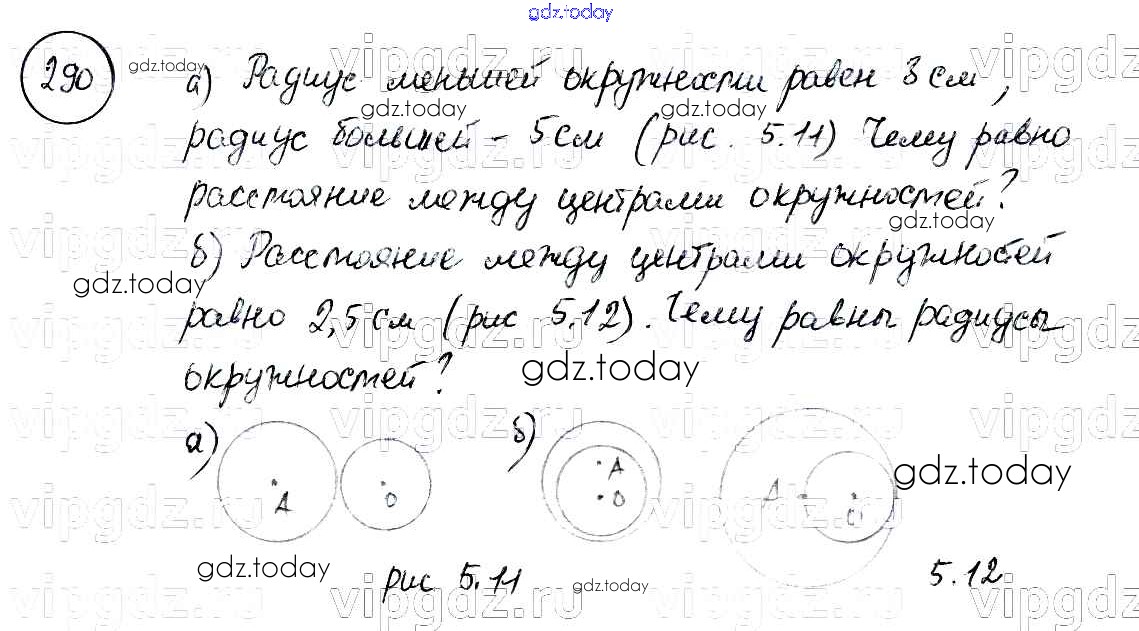 gdz.today
290 gdz.today а) Радиус меньшей окружности равен 3 см,
gdz.today
радиус большей - 5 см (рис. 5.11) Чему равно
расстояние между центрами окружностей?
gdz.today
б) Расстояние между центрами окружностей
gdz.today
равно 2,5 см (рис 5.12). Чему равны радиусы
окружностей?
gdz.today
а) A O б) A O A O
gdz.today
gdz.today рис 5.11 gdz.today 5.12
vipgdz.ru vipgdz.ru vipgdz.ru vipgdz